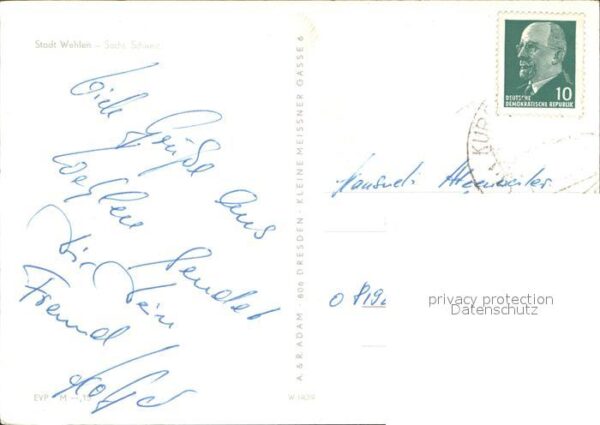 Stadt Wehlen – Sächs. Schweiz
Viele Grüße aus
Wehlen sendet
Dir Dein
Freund
EVP M –,15
A. & R. ADAM · 806 DRESDEN · KLEINE MEISSNER GASSE 6
10
DEUTSCHE
DEMOKRATISCHE REPUBLIK
KUR
privacy protection
Datenschutz